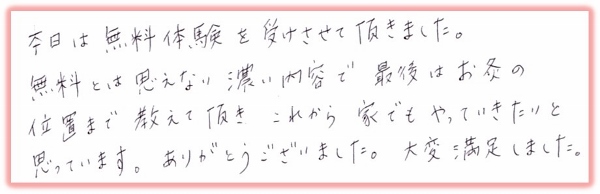 本日は無料体験を受けさせて頂きました。
無料とは思えない濃い内容で 最後はお灸の
位置まで教えて頂き これから家でもやっていきたいと
思っています。ありがとうございました。大変満足しました。